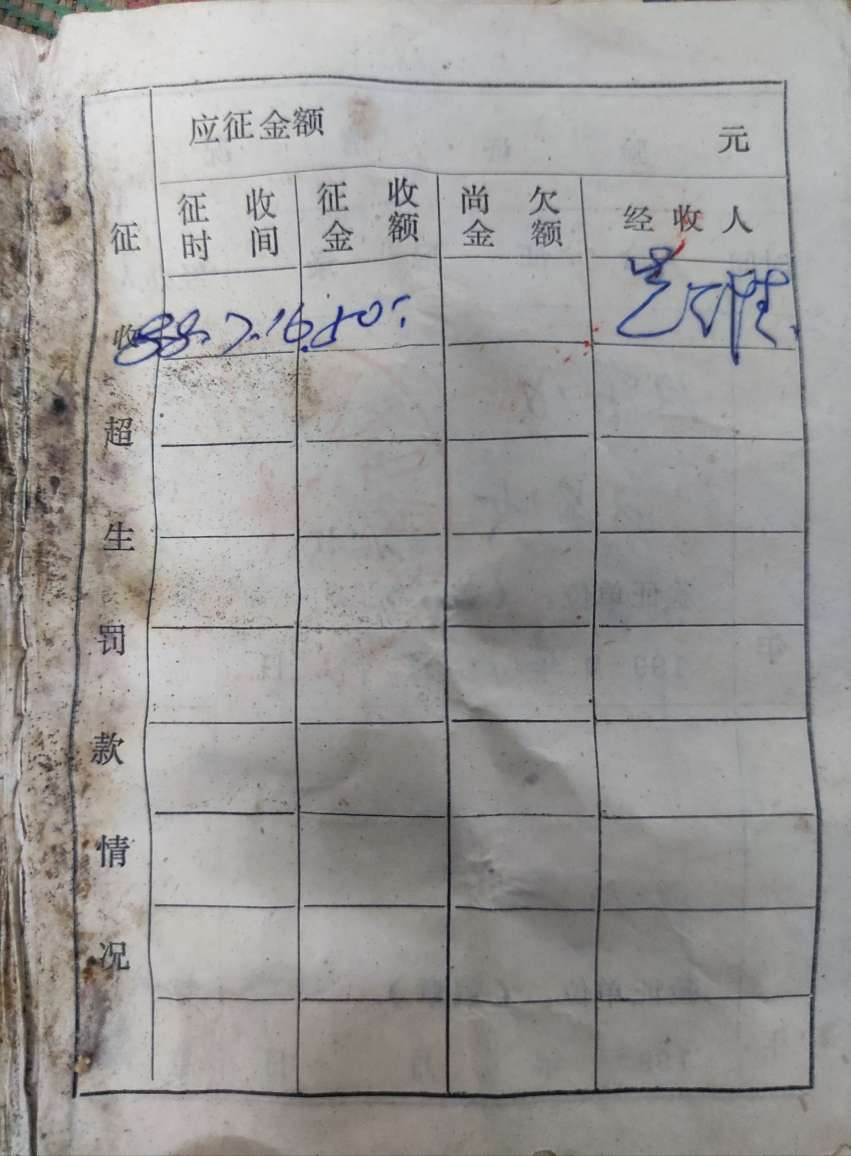 应征金额 元
征收时间 征收金额 尚欠金额 经收人
征收超生罚款情况
88.7.16. 50